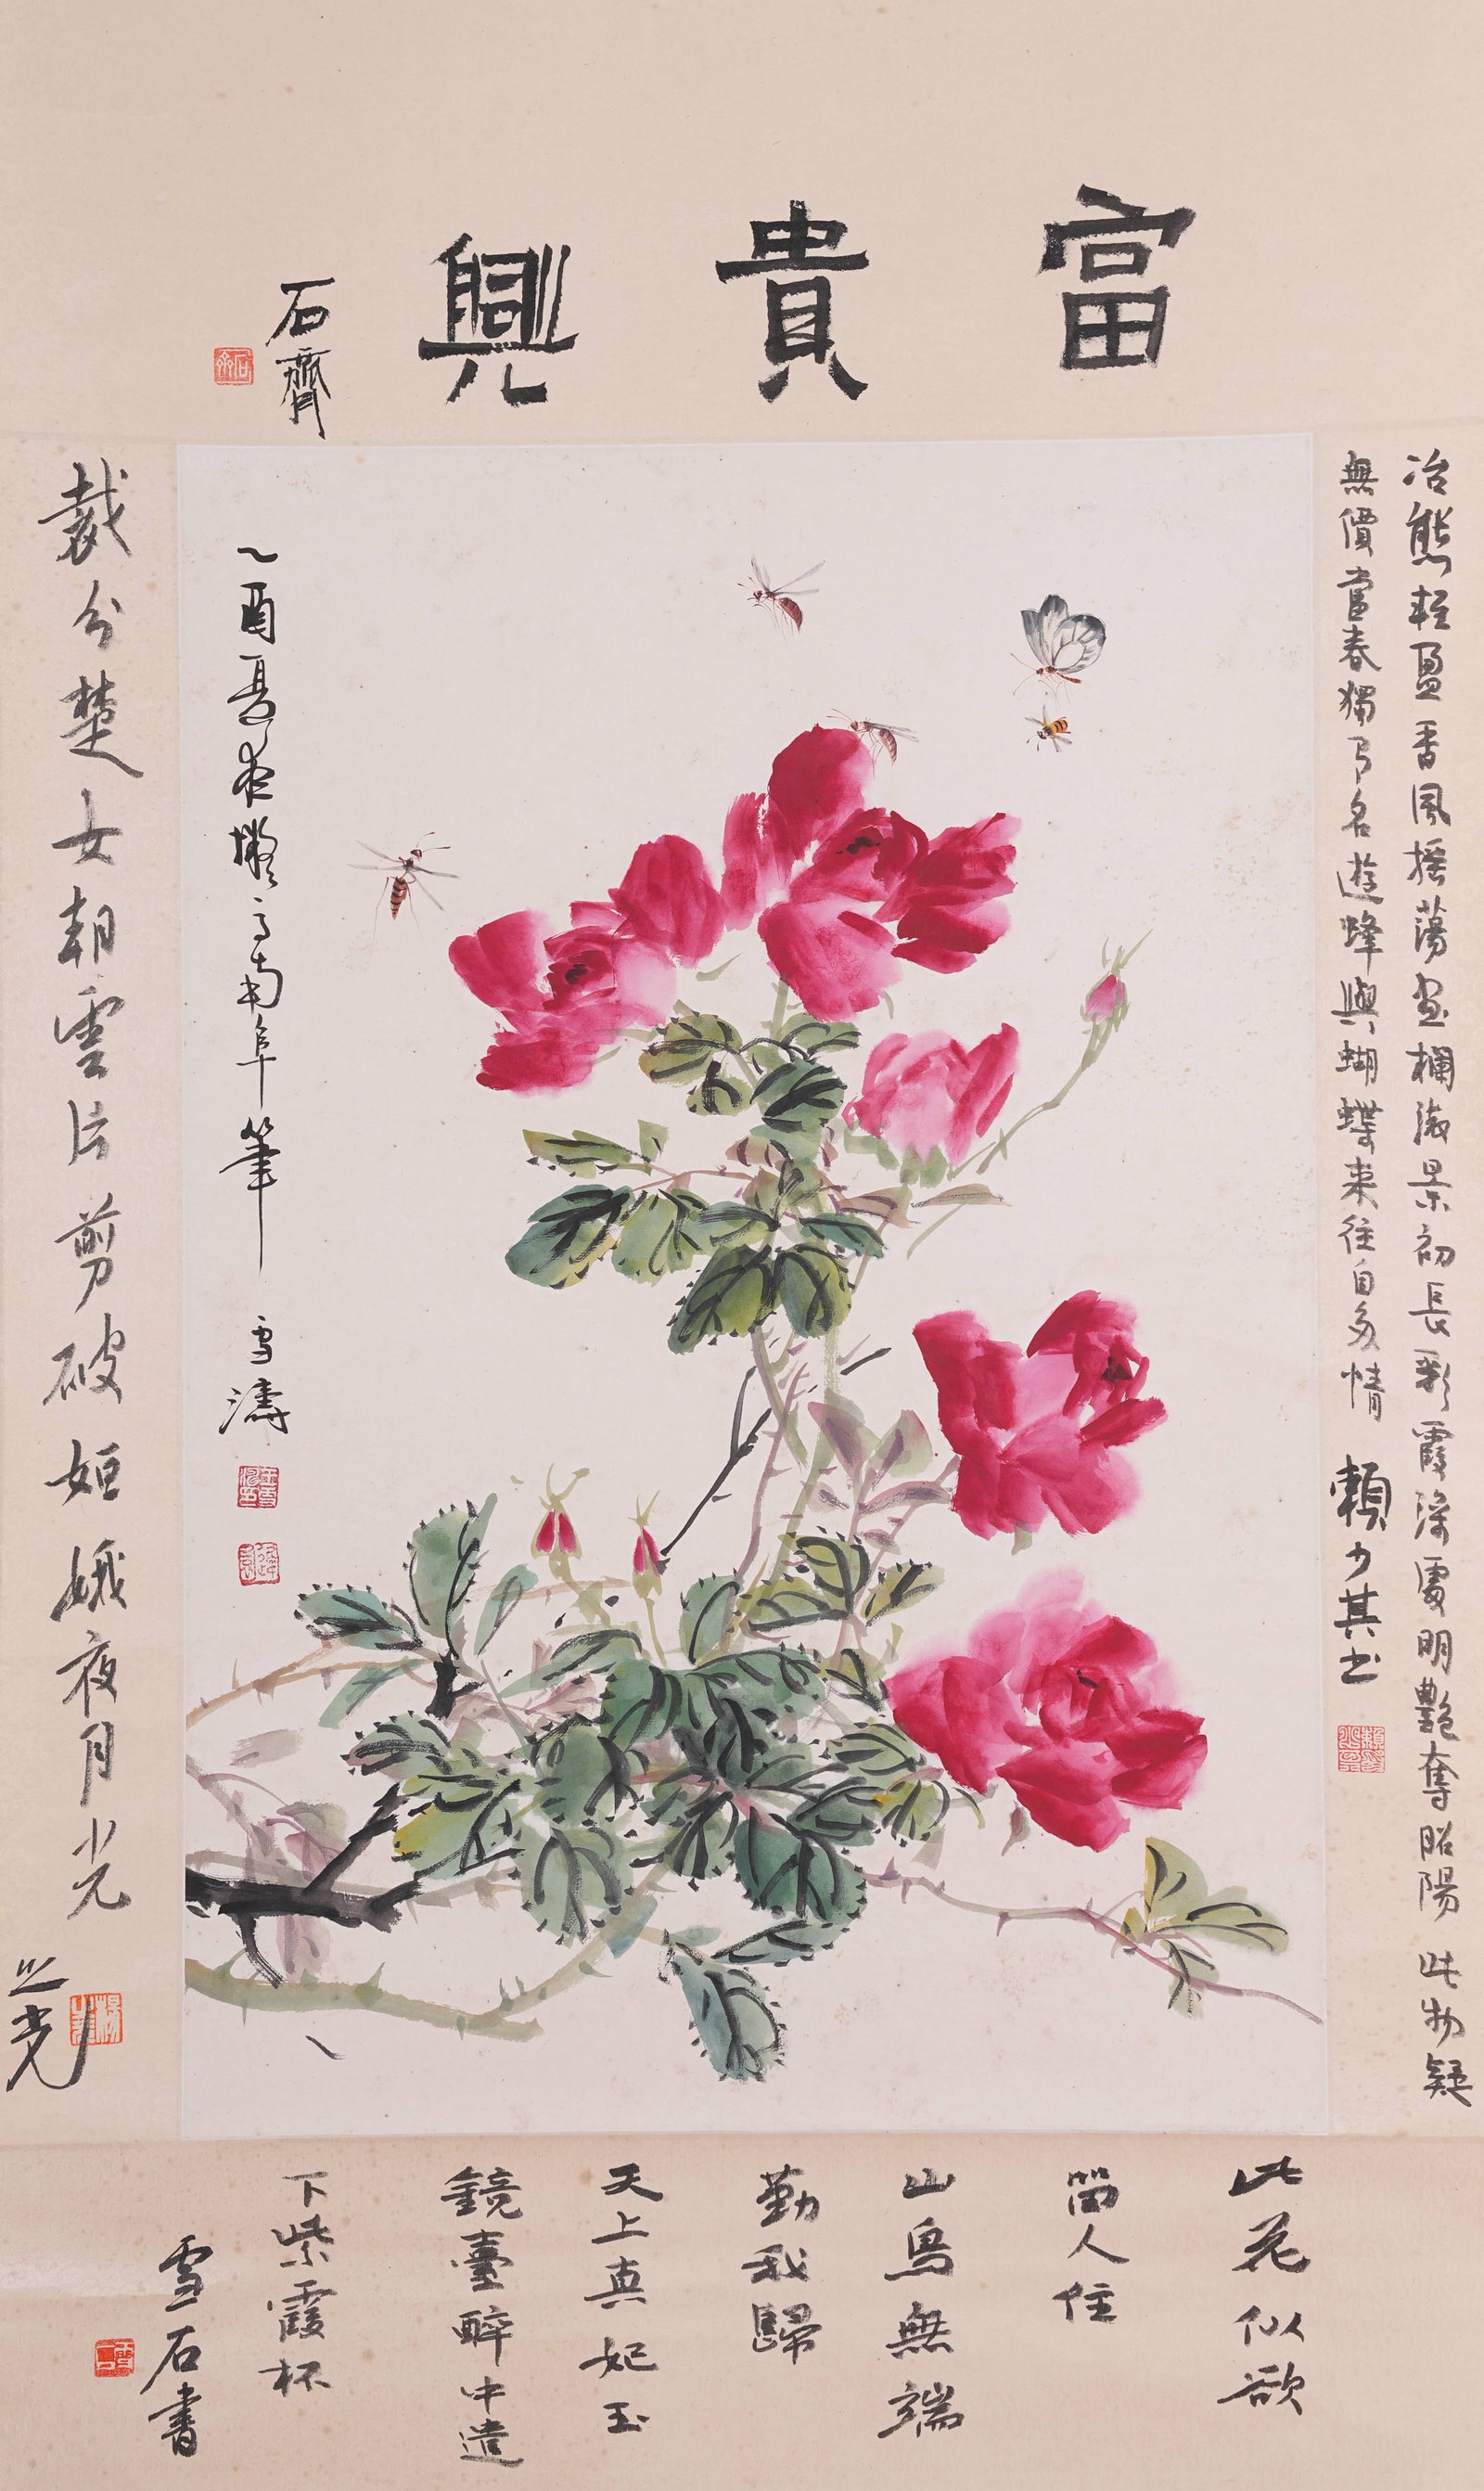 富貴興
石齋
冶態輕盈香風搖蕩畫欄淑景初長彩霞深處明艷奪昭陽 此物疑
無價當春獨有名遊蜂與蝴蝶來往自多情
賴少其書
乙酉夏夜擬高南阜筆
雪濤
裁分楚女朝雲片剪破姮娥夜月光
之光
此花似欲
留人住
山鳥無端
勸我歸
天上真妃玉
鏡臺醉中遣
下紫霞杯
雪石書